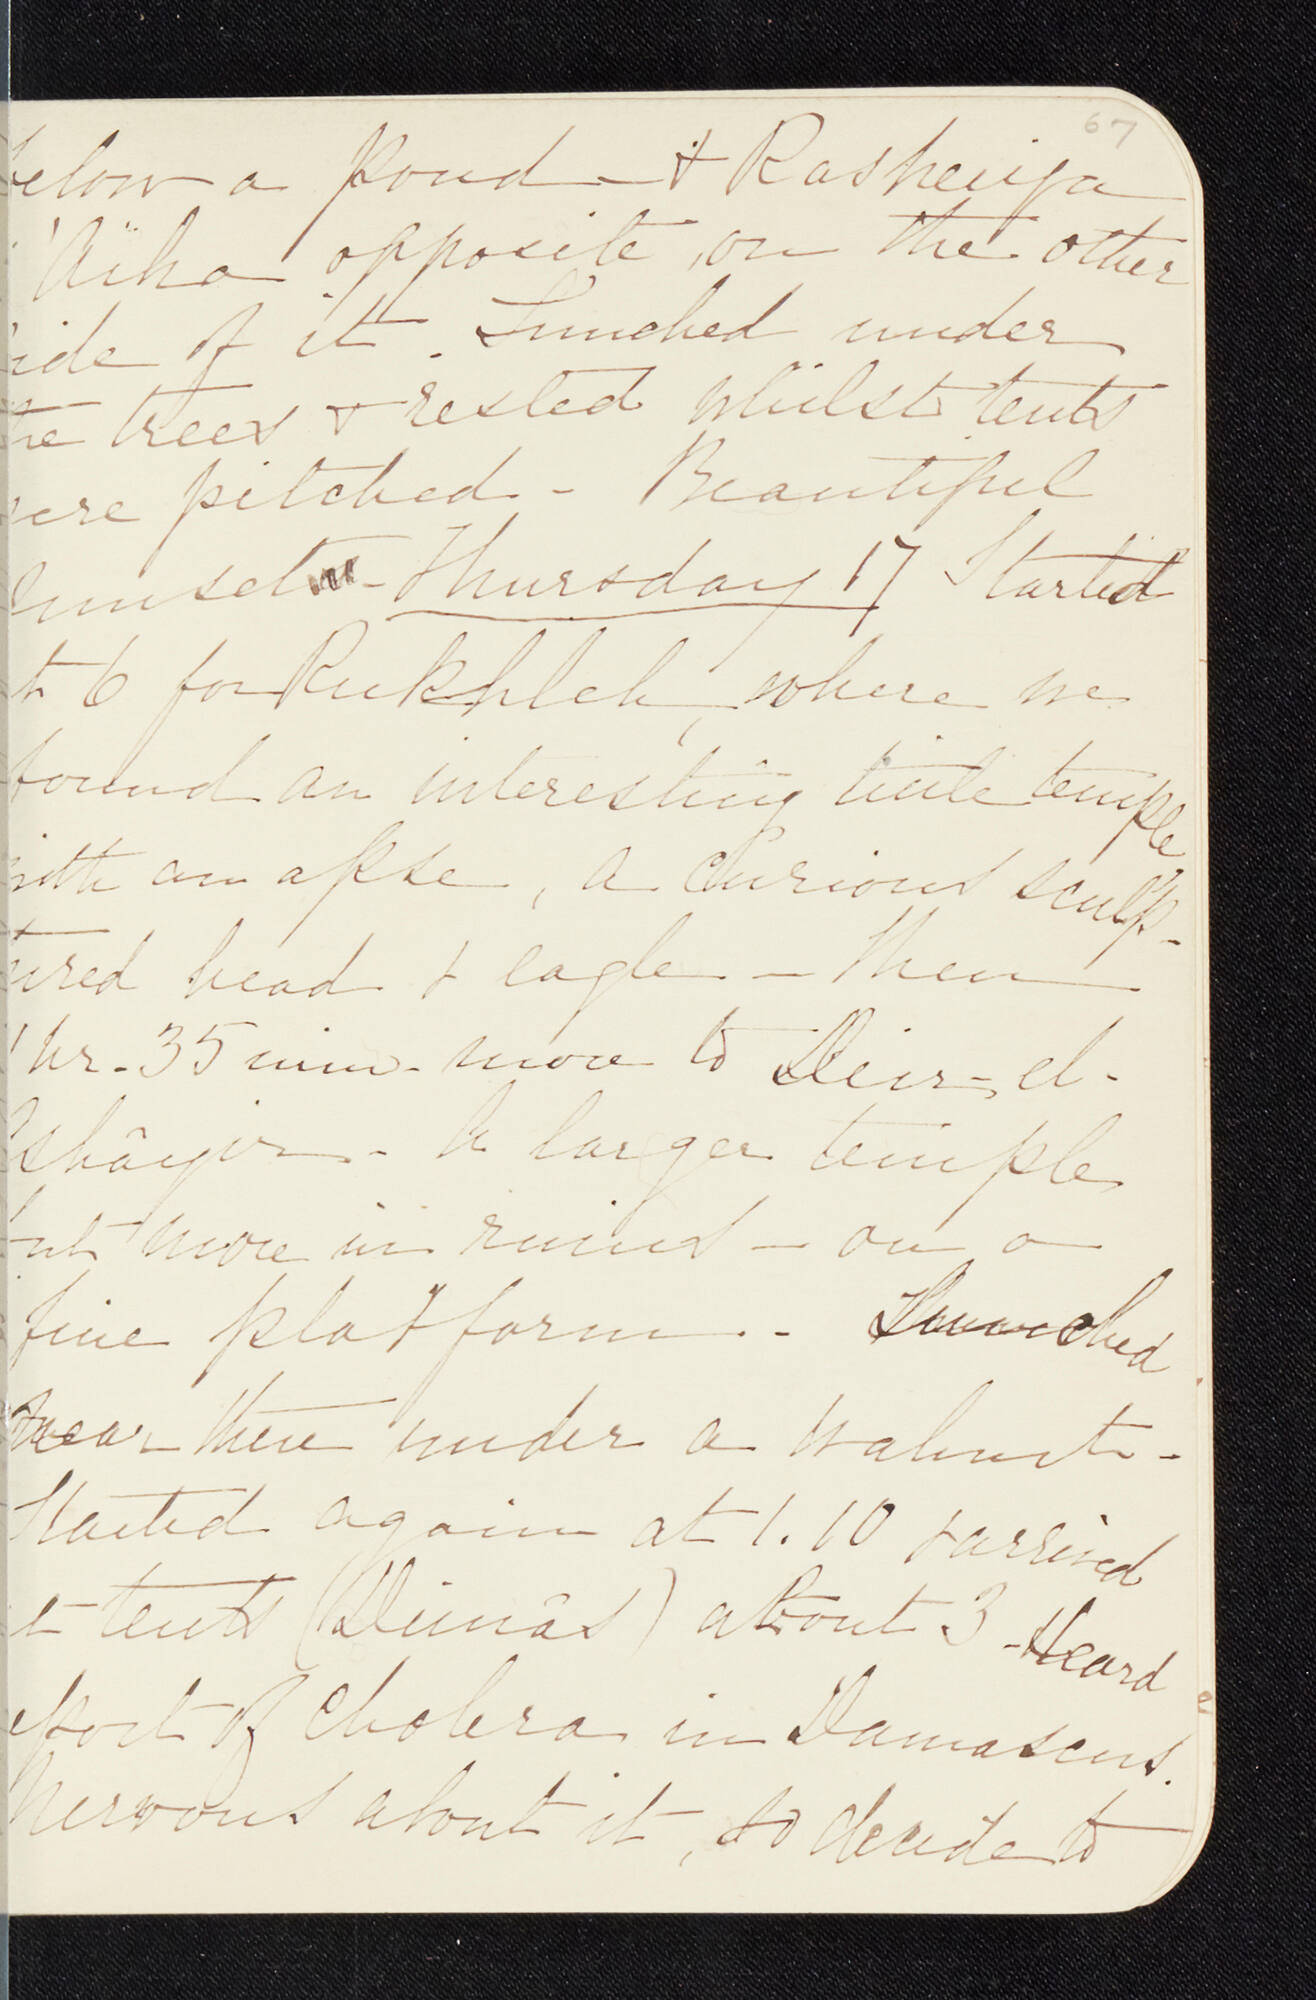 67
below a pond - & Rasheiya
'Aiha opposite, on the other
side of it. Lunched under
the trees & rested whilst tents
were pitched - Beautiful
sunset - Thursday 17 Started
at 6 for Rukhleh, where we
found an interesting little temple
with an apse, a curious sculp-
tured head & eagle - Then
1 hr. 35 min. more to Deir-el-
Ashâyir - A larger temple
but more in ruins - on a
fine platform. - Lunched
near there under a walnut -
Started again at 1.10 & arrived
at tents (Dimâs) about 3 - Heard
report of Cholera in Damascus.
Nervous about it, so decide to